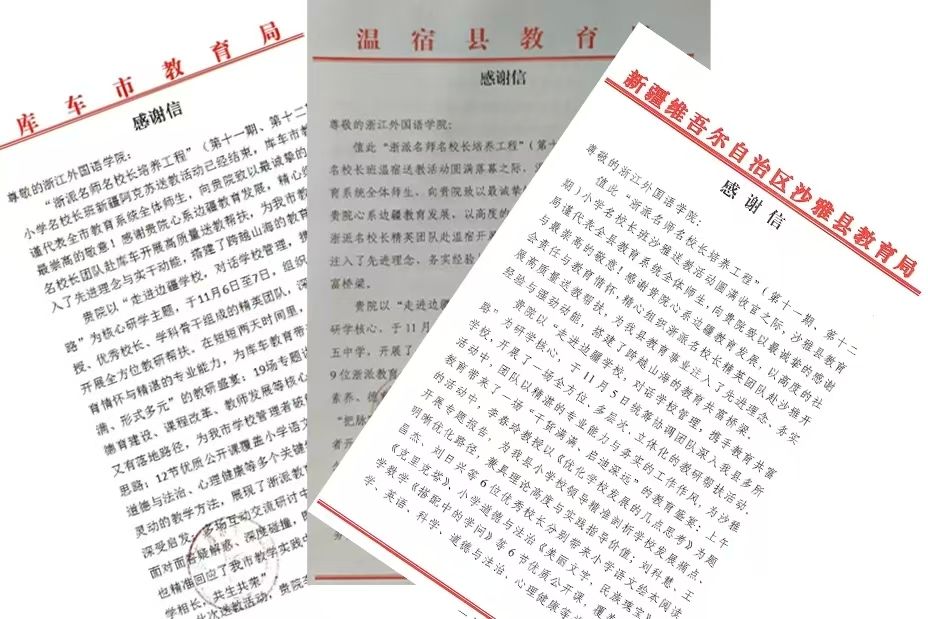 库车市教育局
感谢信
尊敬的浙江外国语学院：
“浙派名师名校长培养工程”（第十一期、第十二
小学名校长班新疆阿克苏送教活动已经结束，库车市教
谨代表全市教育系统全体师生，向贵院致以最诚挚的
最崇高的敬意！感谢贵院心系边疆教育发展，精心组
名校长团队赴库车开展高质量送教帮扶，为我市教
入了先进理念与实干动能，搭建了跨越山海的教育
贵院以“走进边疆学校，对话学校管理，携
路”为核心研学主题，于11月6日至7日，组织
授、优秀校长、学科骨干组成的精英团队，深
开展全方位教研帮扶。在短短两天时间里，
育情怀与精湛的专业能力，为库车教育带
满、形式多元”的教研盛宴：19场专题讲
德育建设、课程改革、教师发展等核心
又有落地路径，为我市学校管理者
思路；12节优质公开课覆盖小学语文
道德与法治、心理健康等多个关键
灵动的教学方法，展现了浙派教
深受启发；多场互动交流研讨中
面对面答疑解惑、深度碰撞，
也精准回应了我市教学实践
学相长，共生共荣”
此次送教活动，贵院
温宿县教育
感谢信
尊敬的浙江外国语学院：
值此“浙派名师名校长培养工程”（第十
名校长班温宿送教活动圆满落幕之际，
育系统全体师生，向贵院致以最诚挚
贵院心系边疆教育发展，以高度的
浙派名校长精英团队赴温宿开展
注入了先进理念、务实经验
富桥梁。
贵院以“走进边
研学核心，于11月
五中学，开展了
9位浙派教育
素养、德育
“把脉
者开
新疆维吾尔自治区沙雅县教育局
感谢信
尊敬的浙江外国语学院：
值此“浙派名师名校长培养工程”（第十一期、第十二
期）小学名校长班沙雅送教活动圆满收官之际，沙雅县教育
局谨代表全县教育系统全体师生，向贵院致以最诚挚的感谢
与最崇高的敬意！感谢贵院心系边疆教育发展，以高度的社
会责任与教育情怀，精心组织浙派名校长精英团队赴沙雅开
展高质量送教帮扶，为我县教育事业注入了先进理念、务实
经验与强劲动能，搭建了跨越山海的教育共富桥梁。
贵院以“走进边疆学校，对话学校管理，携手教育共富
路”为研学核心，于11月5日统筹协调团队深入我县多所
学校，开展了一场全方位、多层次、立体化的教研帮扶活动。
活动中，团队以精湛的专业能力与务实的工作作风，为沙雅
教育带来了一场“干货满满、启迪深远”的教育盛宴：上午
的活动中，李春玲教授以《优化学校发展的几点思考》为题
开展专题报告，为我县小学校领导精准剖析学校发展痛点、
明晰优化路径，兼具理论高度与实践指导价值；刘科慧、王
昌杰、刘日兴等6位优秀校长分别带来小学语文绘本阅读
《克里克塔》、小学道德与法治《美丽文字，民族瑰宝》、小
学数学《搭配中的学问》等6节优质公开课，覆盖
学、英语、科学、道德与法治、心理健康等